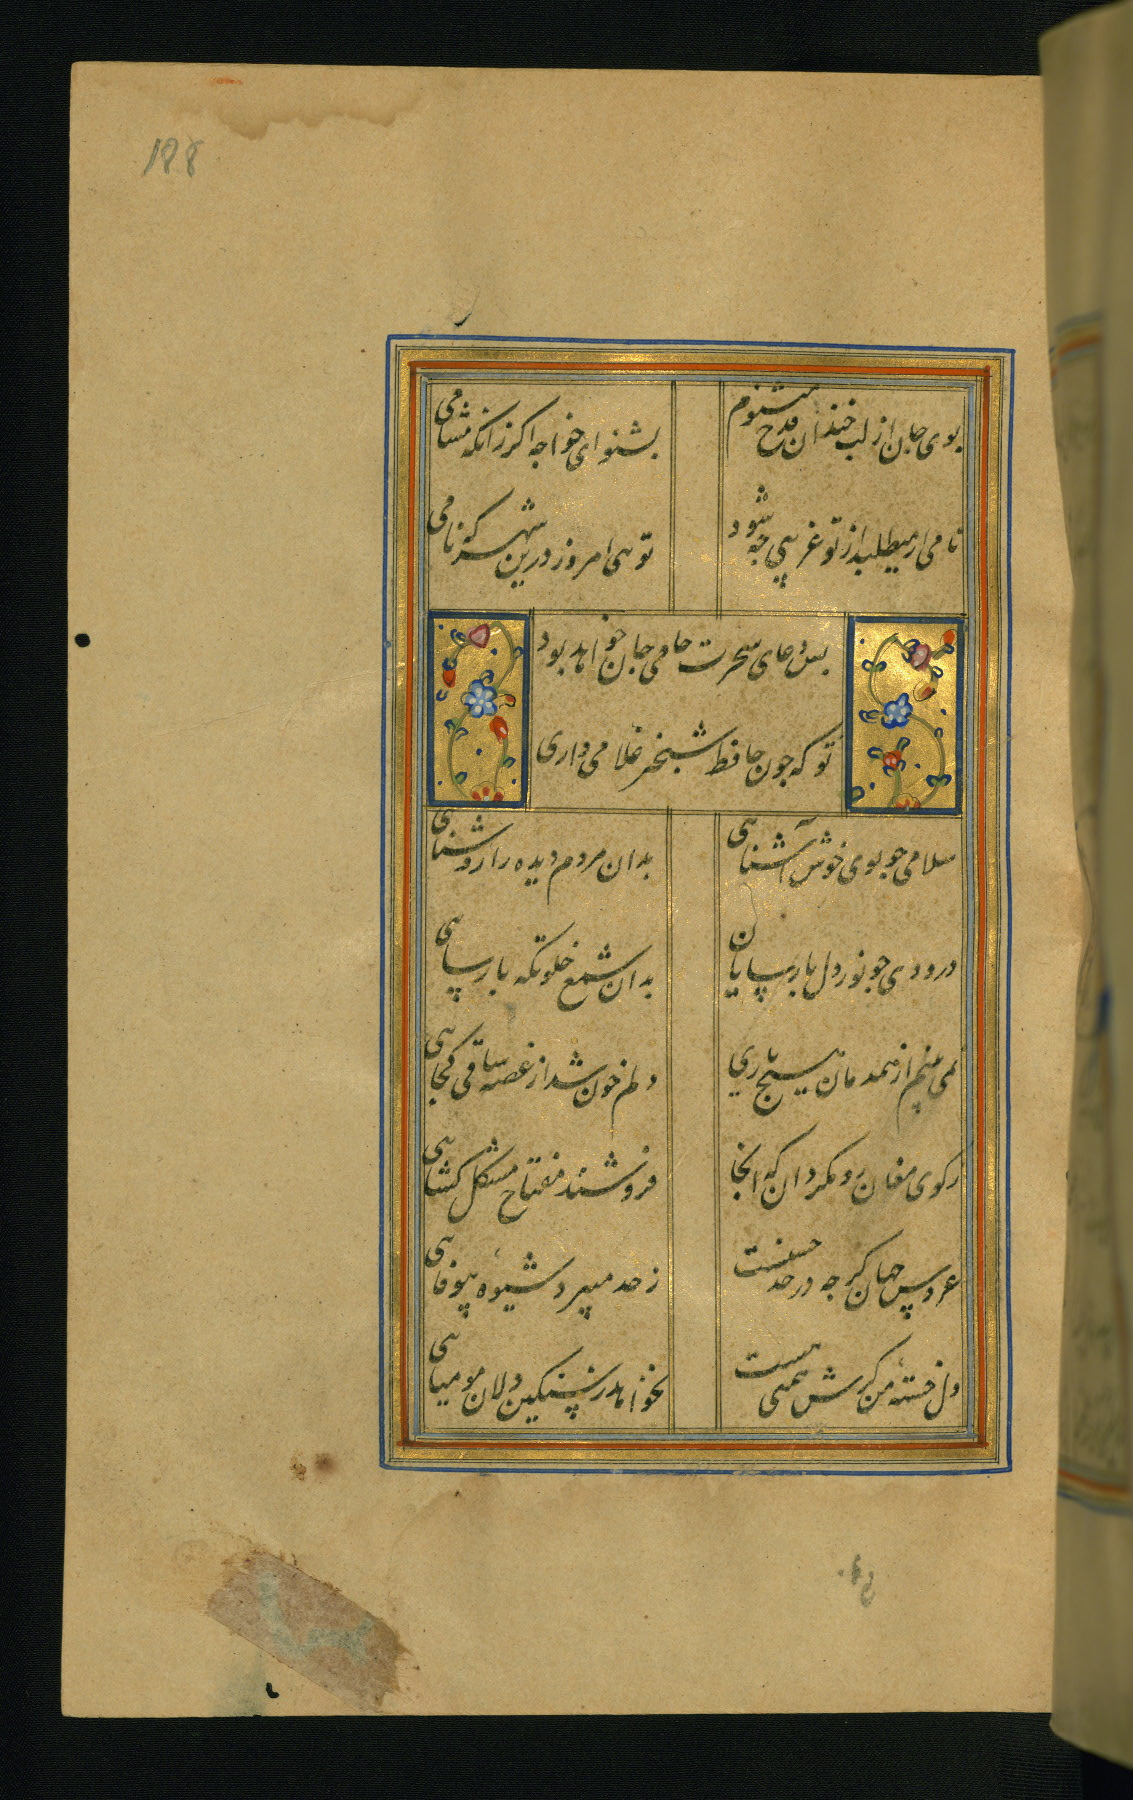 188
بوی جان از لب خندان قدح میشنوم
بشنو ای خواجه اکر زانکه مشامی
نامی ار میطلبد از تو غریبی چه شود
تویی امروز درین شهر که نامی
بس دعای سحرت حامی جان خواهد بود
تو که چون حافظ شبخیز غلامی داری
سلامی چو بوی خوش آشنایی
بدان مردم دیده را روشنایی
درودی چو نور دل پارسایان
بدان شمع خلوتکه پارسایی
نمی بینم از همدمان هیچ یاری
دلم خون شد از غصه ساقی کجایی
ز کوی مغان رو مکردان که انجا
فروشند مفتاح مشکل کشایی
عروس جهان کرچه در حد حسنست
ز حد میبرد شیوه بیوفایی
دل خسته من کرش همتی هست
نخواهد ز سنکین دلان مومیایی